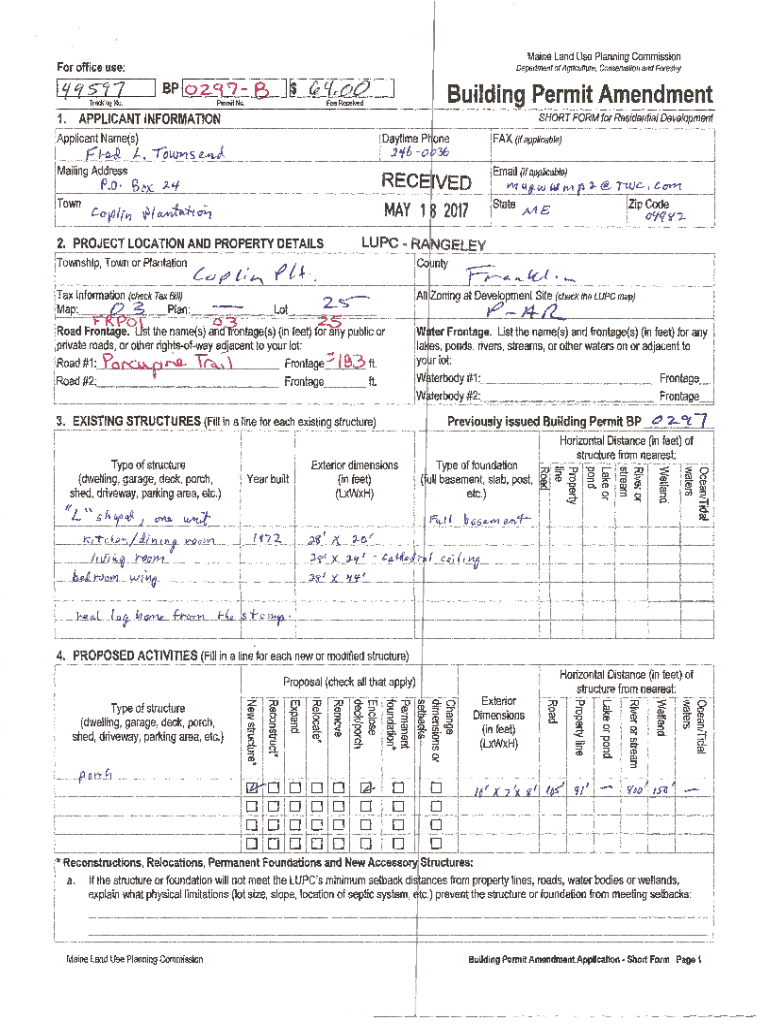 Maine Land Use Planning Commission
Department of Agriculture, Conservation and Forestry
For office use:
49597 BP 0297-B $ 64.00
Tracking No. Permit No. Fee Received
Building Permit Amendment
SHORT FORM for Residential Development
1. APPLICANT INFORMATION
Applicant Name(s) Daytime Phone FAX (if applicable)
Fred L. Townsend 246-0036
Mailing Address Email (if applicable)
P.O. Box 24 RECEIVED
Town State Zip Code
Coplin Plantation MAY 18 2017 ME 04982
2. PROJECT LOCATION AND PROPERTY DETAILS LUPC - RANGELEY
Township, Town or Plantation County
Coplin Plt. Franklin
Tax Information (check Tax Bill) All Zoning at Development Site (check the LUPC map)
Map: 03 Plan: — Lot 25 P-AR
FRP01 03 25
Road Frontage. List the name(s) and frontage(s) (in feet) for any public or
private roads, or other rights-of-way adjacent to your lot:
Road #1: Porcupine Trail Frontage ~183 ft.
Road #2: Frontage ft.
Water Frontage. List the name(s) and frontage(s) (in feet) for any
lakes, ponds, rivers, streams, or other waters on or adjacent to
your lot:
Waterbody #1: Frontage
Waterbody #2: Frontage
3. EXISTING STRUCTURES (Fill in a line for each existing structure) Previously issued Building Permit BP 0297
Type of structure
(dwelling, garage, deck, porch,
shed, driveway, parking area, etc.)
Year built
Exterior dimensions
(in feet)
(LxWxH)
Type of foundation
(full basement, slab, post,
etc.)
Horizontal Distance (in feet) of
structure from nearest:
Road
Property line
Lake or pond
River or stream
Wetland
Ocean/Tidal waters
"L" shaped, one unit Full basement
kitchen/dining room 1972 28' X 20'
living room 28' X 24' - Cathedral ceiling
bedroom wing 28' X 44'
real log home from the stump.
4. PROPOSED ACTIVITIES (Fill in a line for each new or modified structure)
Type of structure
(dwelling, garage, deck, porch,
shed, driveway, parking area, etc.)
Proposal (check all that apply)
New structure*
Reconstruct*
Expand
Relocate*
Remove
Enclose deck/porch
Permanent foundation*
Change dimensions or setbacks
Exterior
Dimensions
(in feet)
(LxWxH)
Horizontal Distance (in feet) of
structure from nearest:
Road
Property line
Lake or pond
River or stream
Wetland
Ocean/Tidal waters
porch X 7' X 8' 105' 91' — 800' 150' —
* Reconstructions, Relocations, Permanent Foundations and New Accessory Structures:
a. If the structure or foundation will not meet the LUPC's minimum setback distances from property lines, roads, water bodies or wetlands,
explain what physical limitations (lot size, slope, location of septic system, etc.) prevent the structure or foundation from meeting setbacks:
Maine Land Use Planning Commission Building Permit Amendment Application - Short Form Page 1